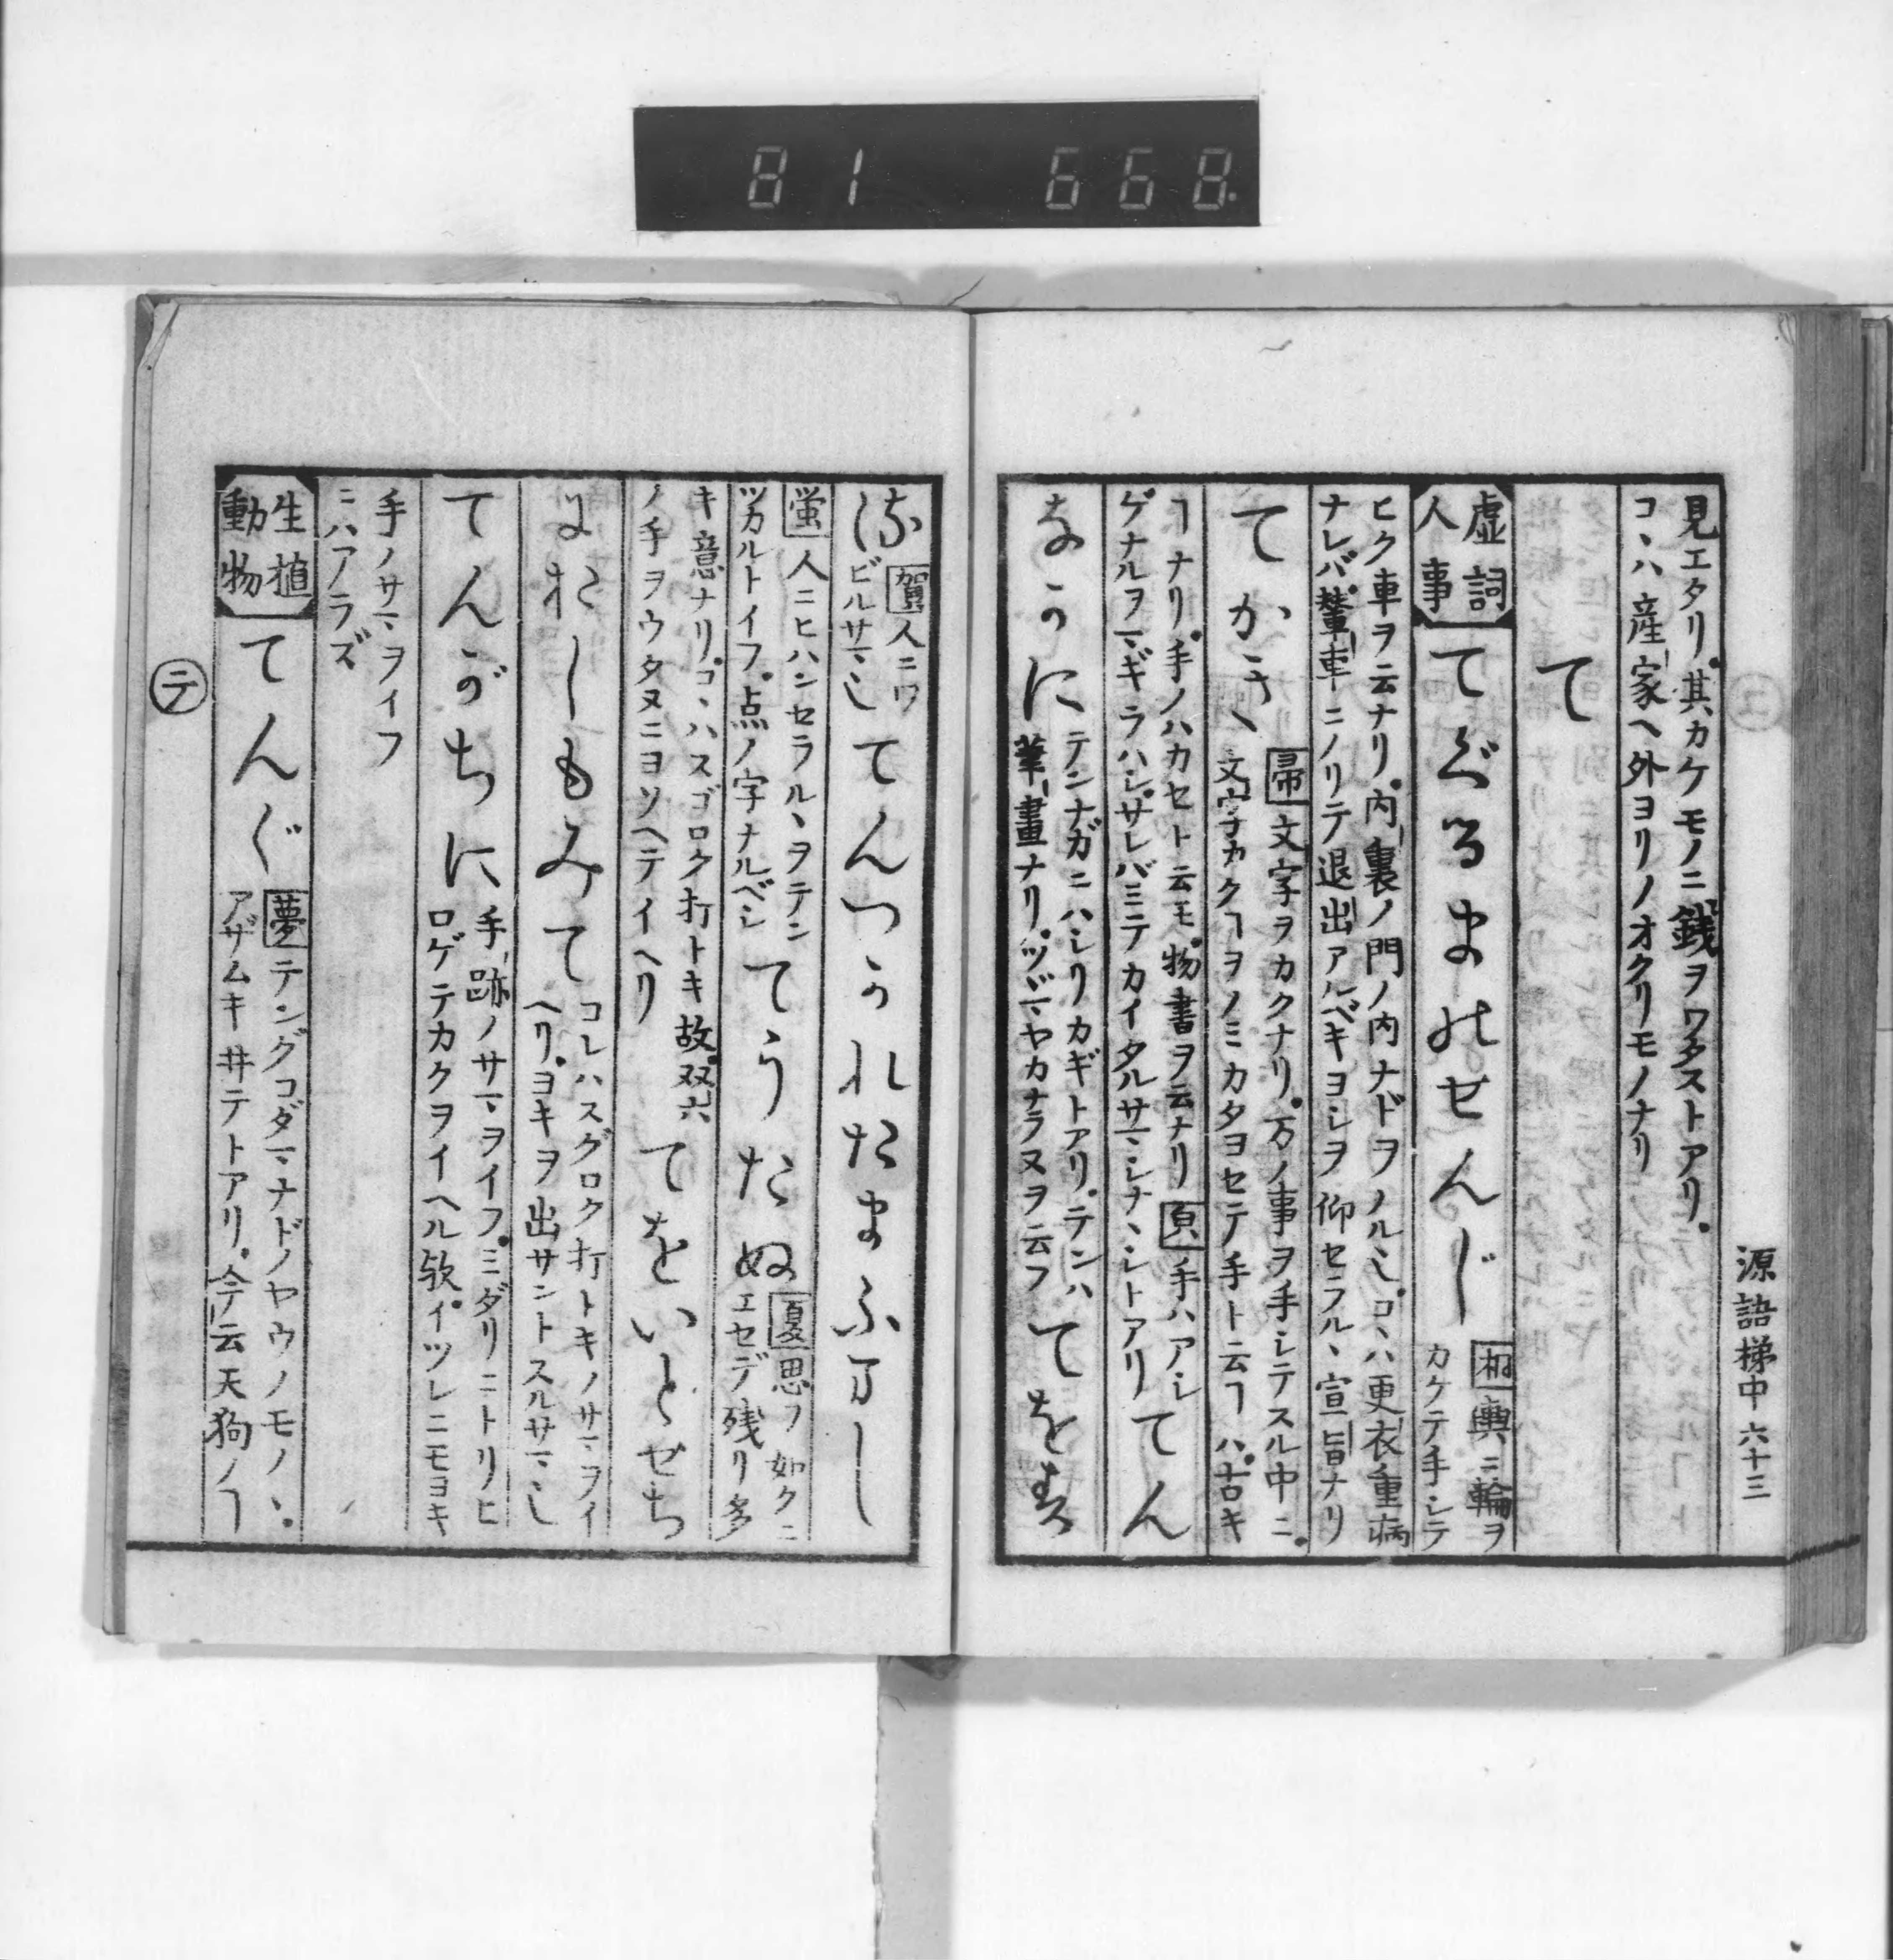 81 668
源語梯中 六十三
見エタリ。其カケモノニ銭ヲワタストアリ。
コヽハ産家ヘ外ヨリノオクリモノナリ
て
虚詞
人事
てぐるまのせんじ
桐 輿ニ輪ヲ
カケテ手シテ
ヒク車ヲ云ナリ。内裏ノ門ノ内ナドヲノルシ。コヽハ更衣重病
ナレバ。輦車ニノリテ退出アルベキヨシヲ仰セラルヽ宣旨ナリ
てかき
帚 文字ヲカクナリ。万ノ事ヲ手シテスル中ニ。
文字カクヿヲノミカタヨセテ手ト云ヿハ。古キ
ヿナリ。手ノハカセト云モ。物書ヲ云ナリ 手ハアシ
ゲナルヲマギラハシ。サレバミテカイタルサマシナヽシトアリ
てん
ながに
テンナガニハシリカギトアリ。テンハ
筆畫ナリ。ツヾマヤカナラヌヲ云フ
てををす
賀 人ニワ
ビルサマシ
てんつかれたまふまし
蛍 人ニヒハンセラルヽヲテン
ツカルトイフ。点ノ字ナルベシ
てうたぬ
夏 思フ如クニ
エセデ残リ多
キ意ナリ。コヽハスゴロク打トキ故。双六
ノ手ヲウタヌニヨソヘテイヘリ
てをいとせち
におしもみて
コレハスグロク打トキノサマヲイ
ヘリ。ヨキヲ出サントスルサマシ
てんがちに
手跡ノサマヲイフ。ミダリニトリヒ
ロゲテカクヲイヘル欤。イツレニモヨキ
手ノサマヲイフ
ニハアラズ
生植
動物
てんぐ
夢 テングコダマナドノヤウノモノヽ。
アザムキ井テトアリ。今云天狗ノヿ
テ